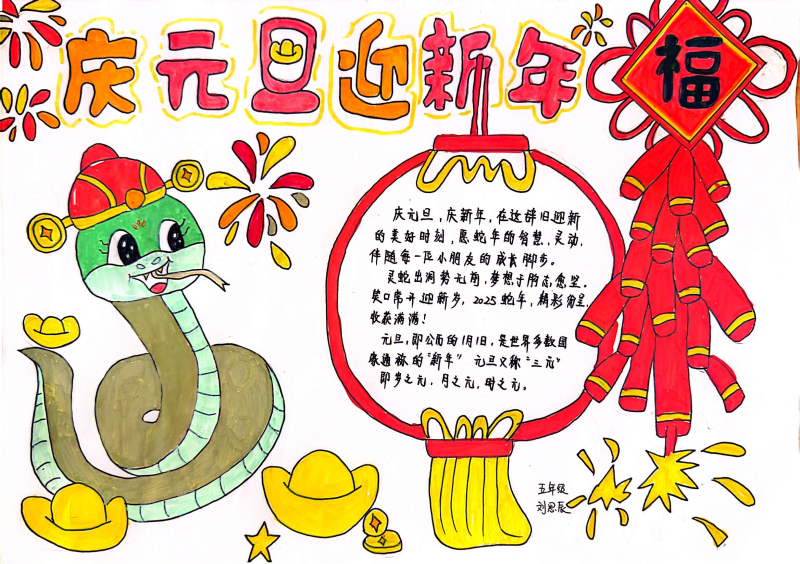 庆元旦迎新年
福
庆元旦,庆新年,在这辞旧迎新
的美好时刻,愿蛇年的智慧,灵动,
伴随每一位小朋友的成长脚步。
灵蛇出洞势无前,梦想于胸志愈坚。
笑口常开迎新岁,2025蛇年,精彩
收获满满!
元旦,即公历的1月1日,是世界多数国
家通称的“新年” 元旦又称“三元”
即岁之元,月之元,时之元。
五年级
刘思辰